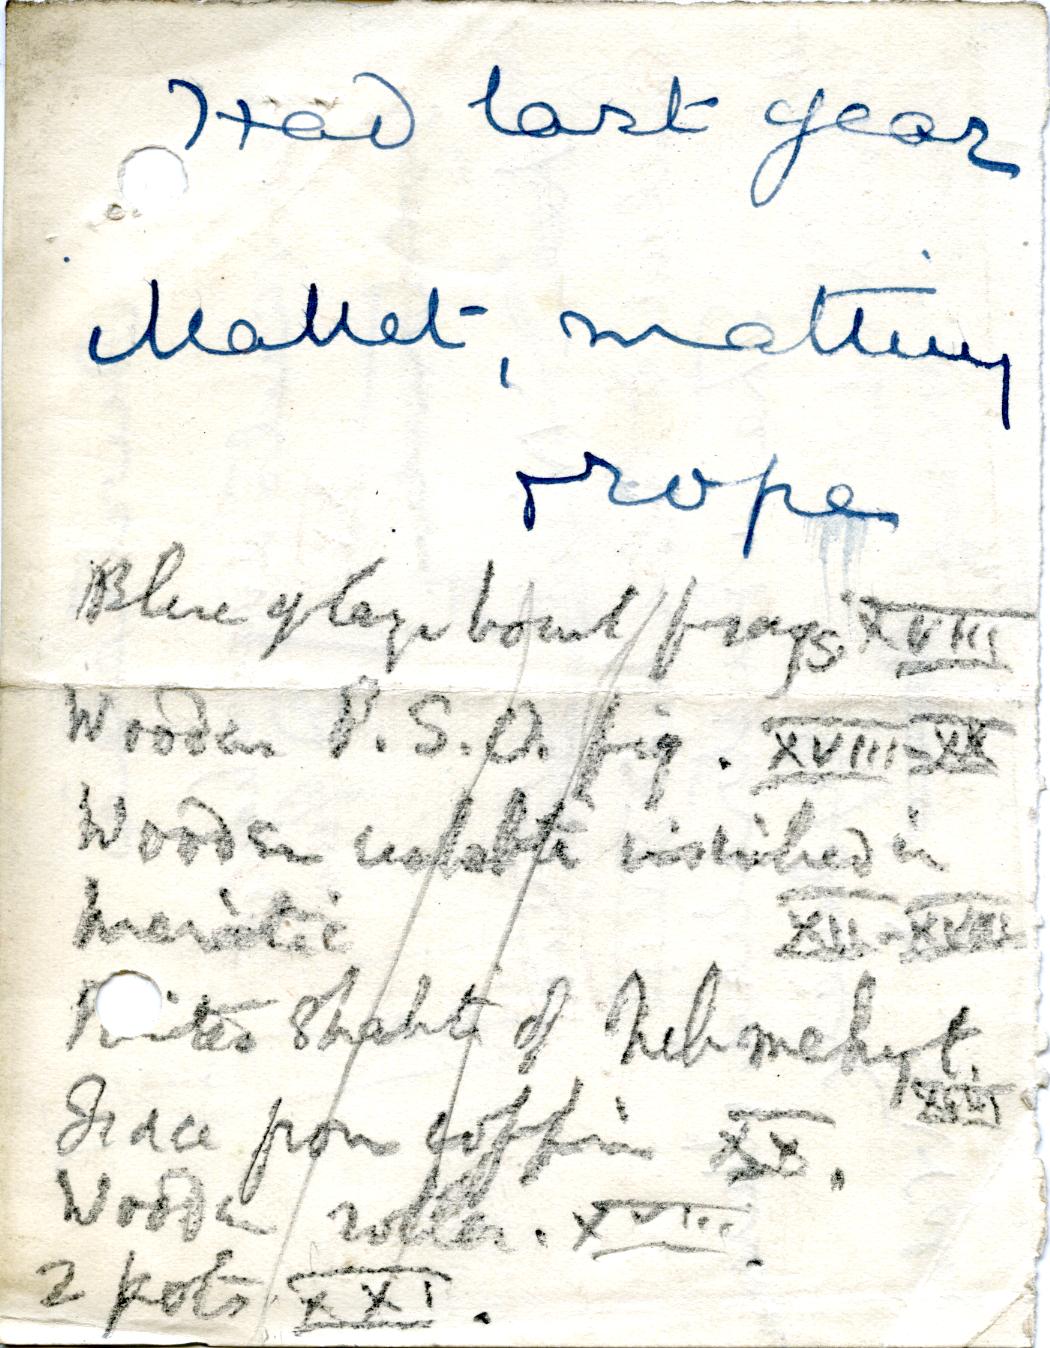 Had last year
Mallet, matting
rope
Blue glaze bowl frags. XVIII
Wooden P.S.O. fig. XVIII-XX
Wooden ushabti inscribed in
hieratic XII-XVIII
Shabti of Nebmehyt. XVIII
Face from coffin XX.
Wooden roller. XVIII.
2 pots XXI.